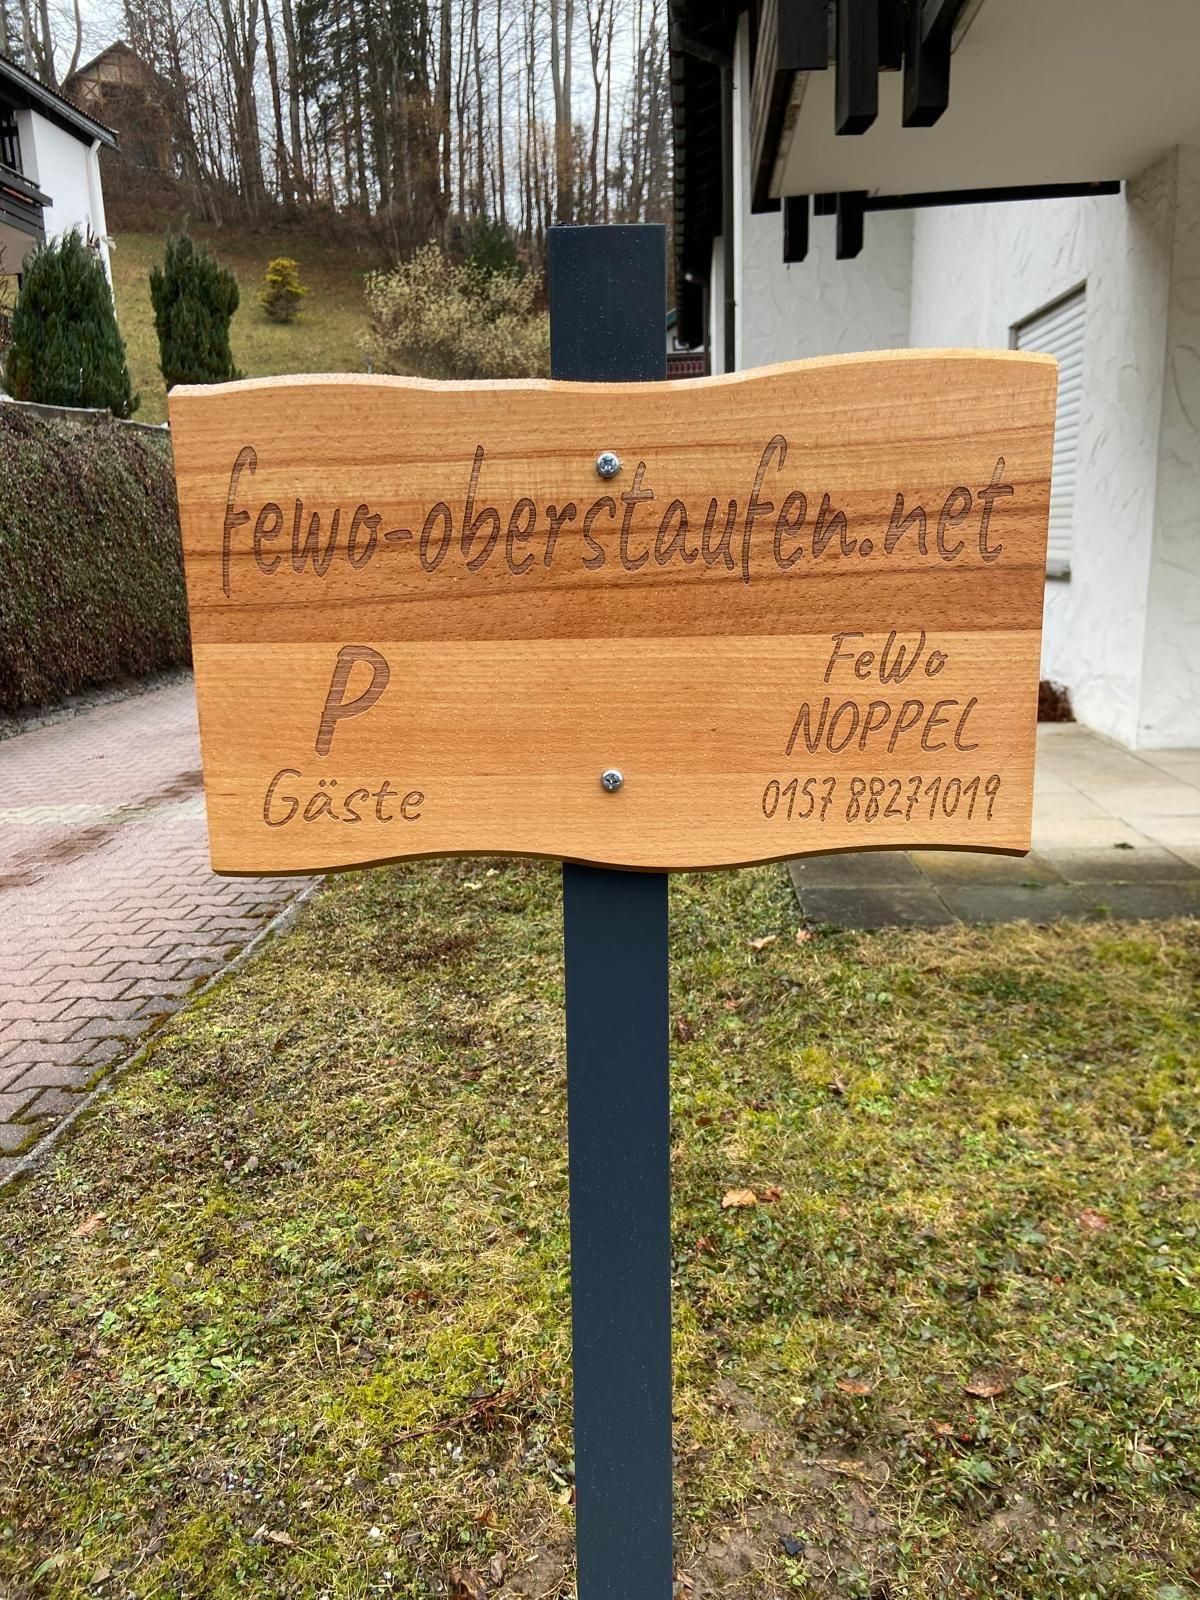 fewo-oberstaufen.net
P
Gäste
FeWo
NOPPEL
0157 88271019